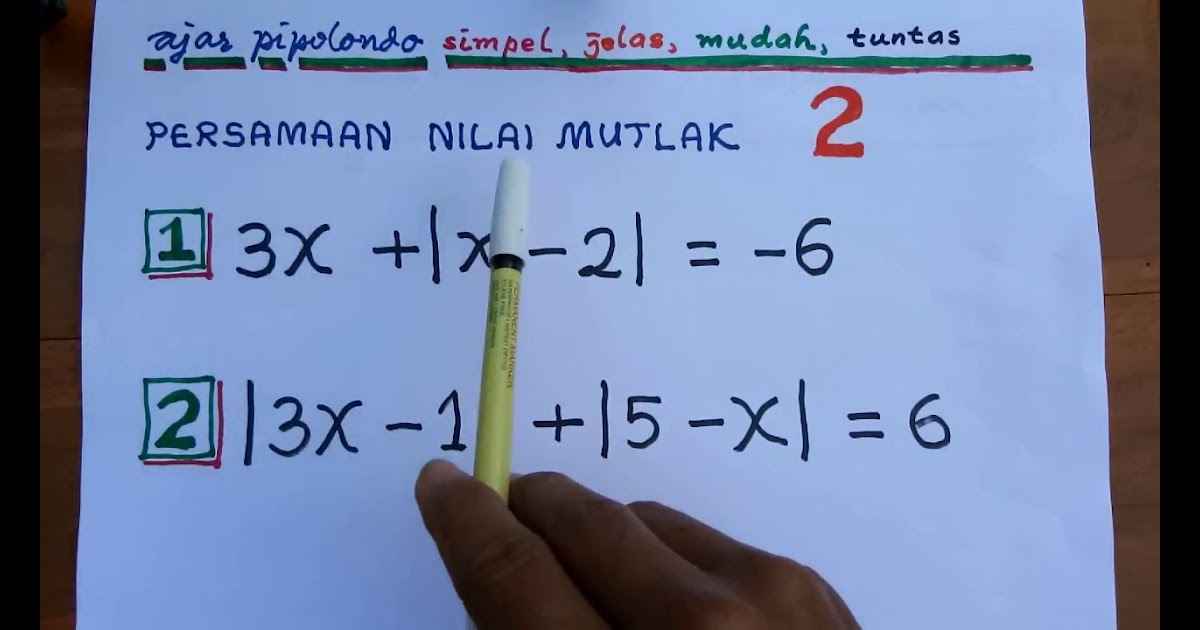 ajar pipolondo simpel, jelas, mudah, tuntas
PERSAMAAN NILAI MUTLAK 2
1 3x + |x - 2| = -6
2 |3x - 1 + |5 - x| = 6